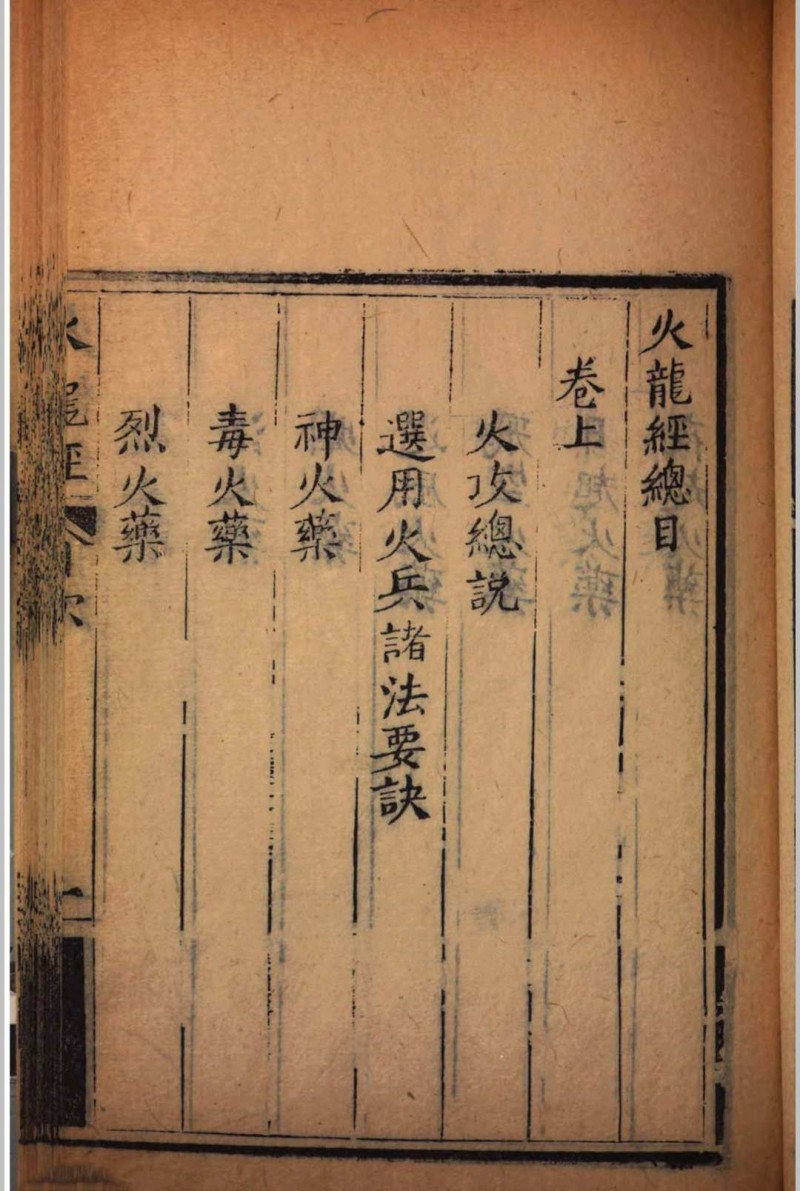 火龍經總目
卷上
火攻總説
選用火兵諸法要訣
神火藥
毒火藥
烈火藥